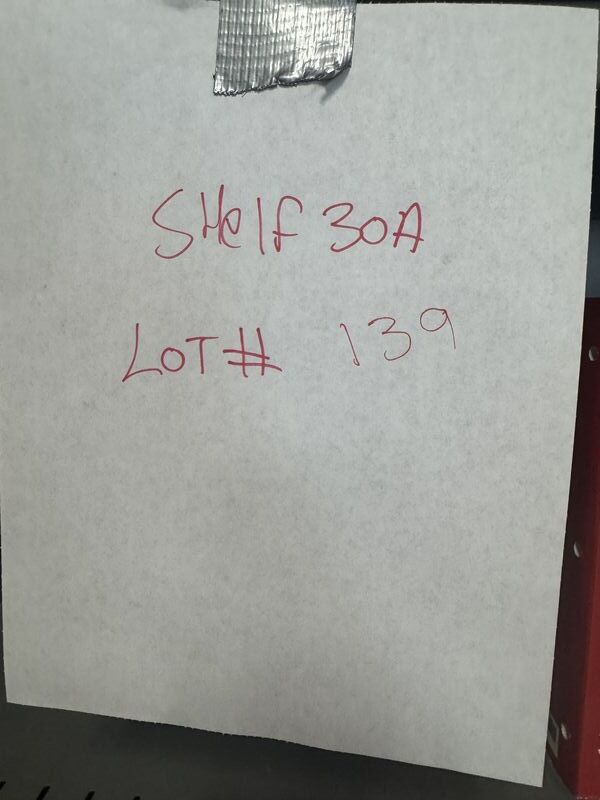 SHelf 30A
LOT# 139